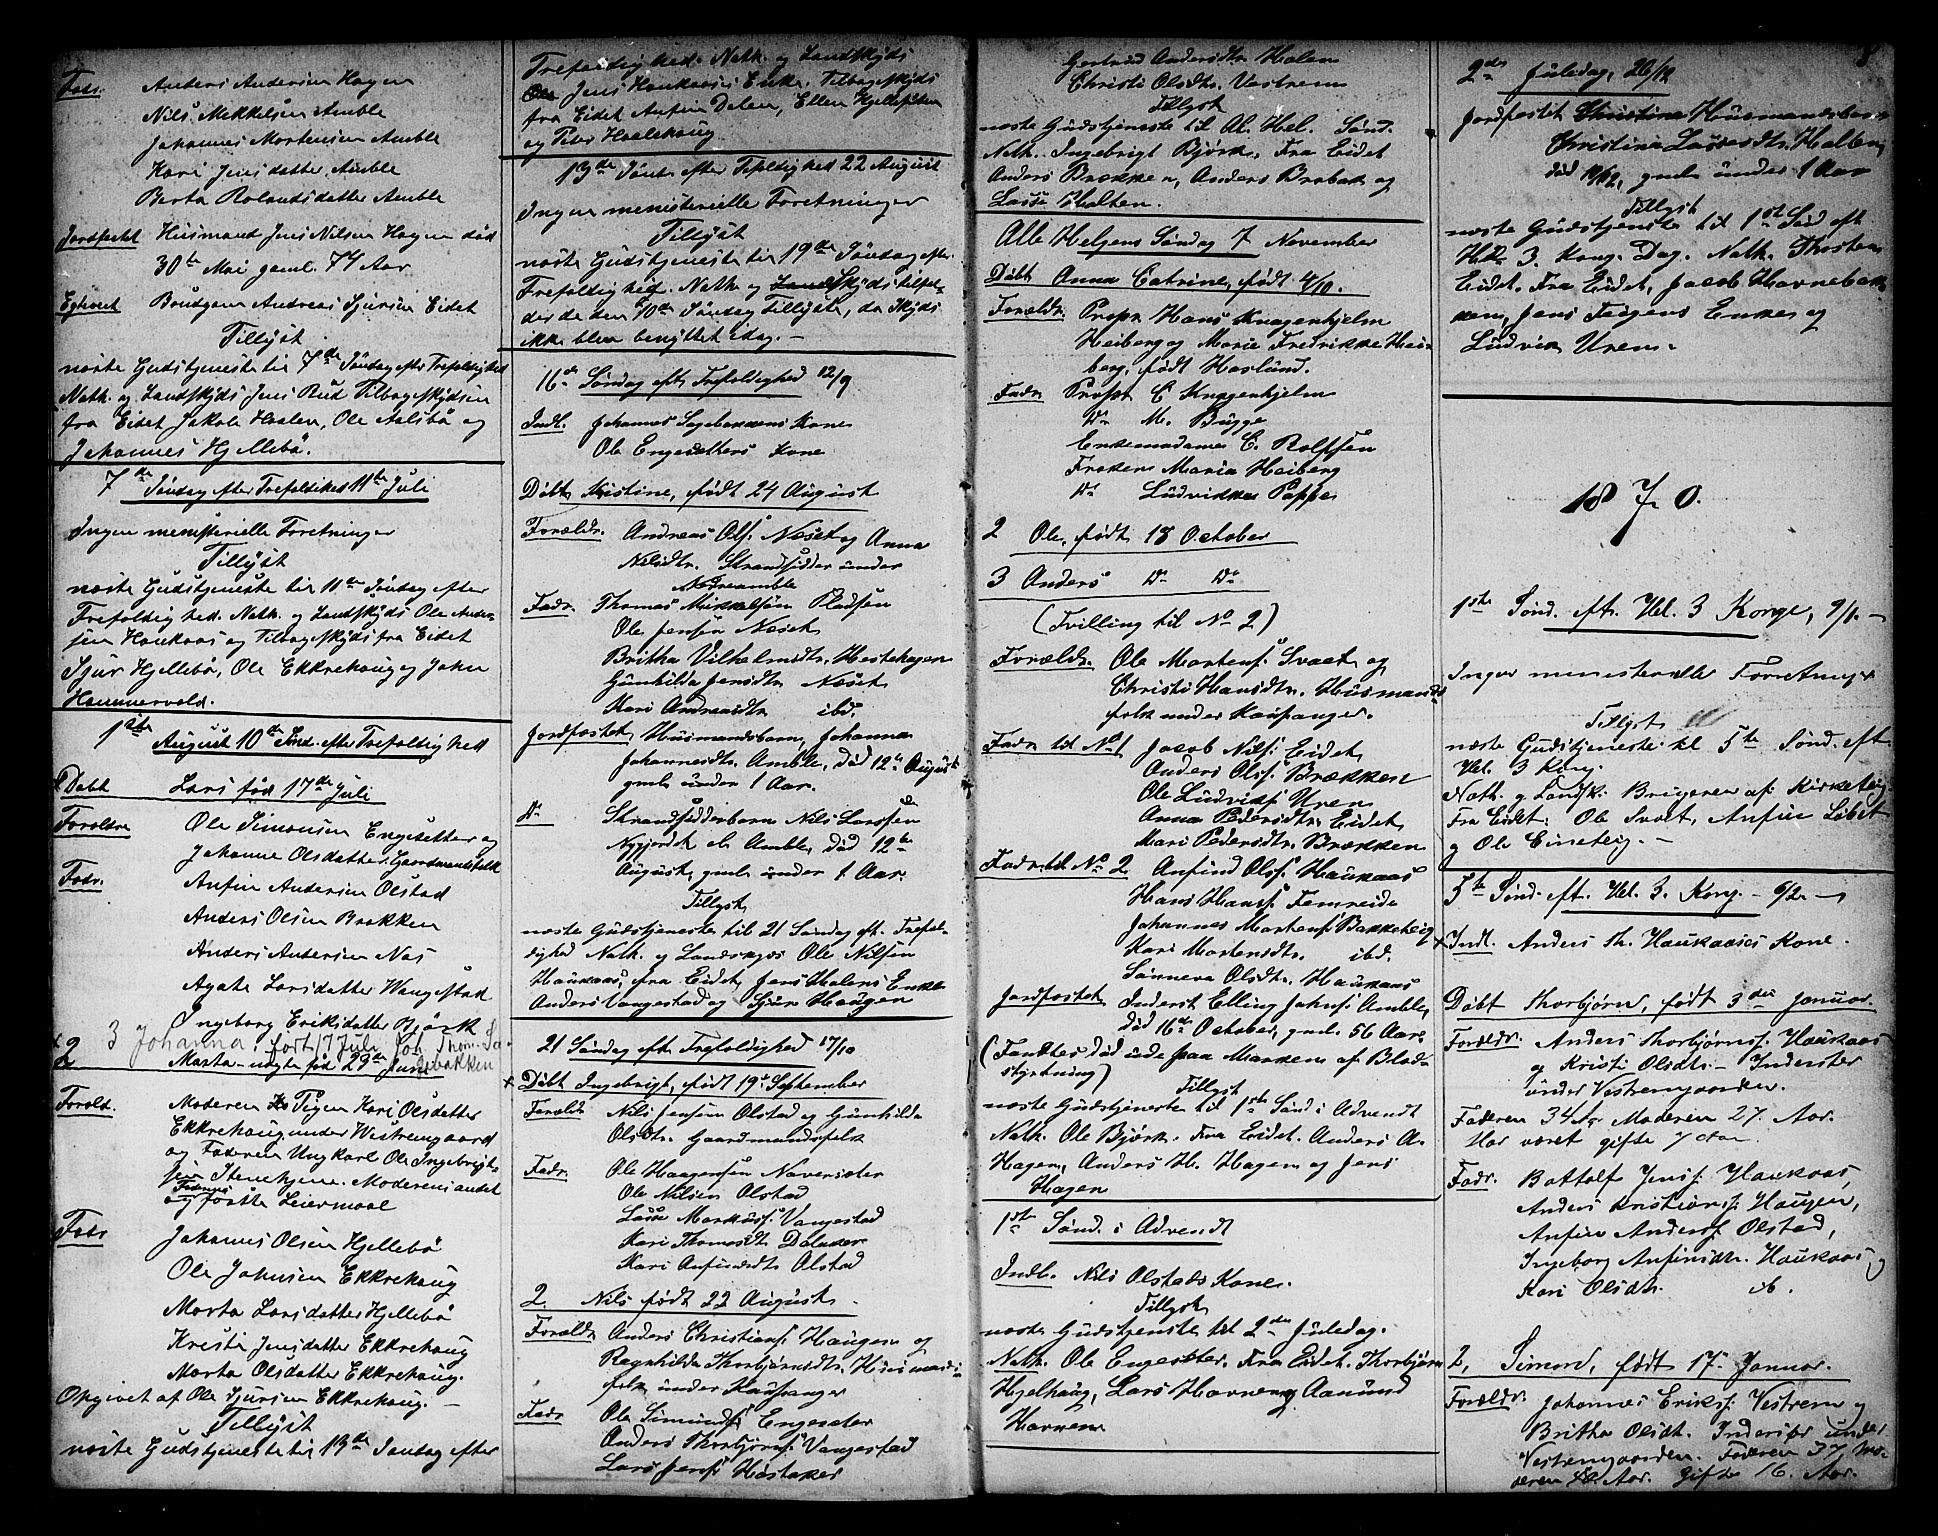 Fadr. Anders Andersen Hagen
Nils Mikkelsen Amble
Johannes Mortensen Amble
Kari Jensdatter Amble
Berta Rolandsdatter Amble
Jordfæstet Husmand Jens Nilsen Hagen død
30te Mai gaml. 74 Aar
Egteviet Brudgom Andreas Sjursen Eidet
Tillyst
næste Gudstjeneste til 7de Søndag efter Trefoldighed
Nath. og Landskyds Jens Rud Tilbageskydsen
fra Eidet Jakob Haslen, Ole Aalsbø og
Johannes Hjellebø.
7de Søndag efter Trefoldighed 11te Juli
Ingen ministerielle Forretninger
Tillyst
næste Gudstjeneste til 11te Søndag efter
Trefoldighed. Nath. og Landskyds Ole Ander-
sen Haukaas og Tilbageskyds fra Eidet
Sjur Hjellebø, Ole Ekkrehaug og John
Hammervold.
1ste August 10de Sønd. efter Trefoldighed
Døbt Lars fød 17de Juli
Forældre Ole Simonsen Engesetter og
Johanne Olsdatter Gaardmandsfolk
Fadr. Anfin Andersen Olstad
Anders Olsen Brækken
Anders Andersen Næs
Agate Larsdatter Wangestad
Ingeborg Eriksdatter Bjørk
3 Johanna, født 17 Juli
2 Marta uægte fød 29de Juni
Foræld. Moderen Pigen Kari Olsdatter
Ekkrehaug under Westrengaard
og Faderen Ungkarl Ole Ingebrigt-
sen Stenehjem. Moderens andet
og Faderens første Leiermaal
Fadr Johannes Olsen Hjellebø
Ole Johnsen Ekkrehaug
Marta Larsdatter Hjellebø
Kristi Jensdatter Ekkrehaug
Marta Olsdatter Ekkrehaug.
Opgivet af Ole Sjursen Ekkrehaug.
Tillyst
næste Gudstjeneste til 13de Søndag efter
Trefoldighed. Nath. og Landskyds
Jens Haukaases Enke. Tilbageskyds
fra Eidet Anfin Dalen, Ellen Hjelleflaten
og Peter Haalehaug
13de Sønd. efter Trefoldighed 22 August
Ingen ministerielle Forretninger
Tillyst
næste Gudstjeneste til 19de Søndag efter
Trefoldighed. Nath. og Landskyds tilfæl-
der de den 10de Søndag Tillyste, da Skyds
ikke blev benyttet idag. —
16de Søndag eft. Trefoldighed 12/9
Indl. Johannes Sagebakkens Kone
Ole Engesetters Kone
Døbt Kristine, født 24 August
Forældr. Andreas Ols. Næset og Anna
Nilsdtr. Strandsidder under
Nedreamble
Fadr. Thomas Mikkelsen Pladsen
Ole Jensen Næset
Britha Vilhelmsdtr. Hestehagen
Gunhilda Jensdtr. Næset
Kari Andreasdtr. ibd.
Jordfæstet Husmandsbarn, Johanna
Johannesdtr. Amble, død 12te August
gml. under 1 Aar.
Do Strandsidderbarn Nils Larssen
Nygjordet ell. Amble, død 12te
August, gml. under 1 Aar.
Tillyst
næste Gudstjeneste til 21 Søndag eft. Trefol-
dighed Nath. og Landskyds Ole Nilsen
Haukaas, fra Eidet, Jens Halens Enke
Anders Vangestad og Sjur Haugen
21 Søndag eft. Trefoldighed 17/10
Døbt Ingebrigt, født 19de September
Forældr. Nils Jensen Olstad og Gunhilda
Olsdtr. Gaardmandsfolk
Fadr. Ole Haagensen Naversæter
Ole Nilsen Olstad
Lasse Markuss. Vangestad
Kari Thomasdtr. Dalaker
Kari Anfinsdtr. Olstad
2. Nils født 22 August
Forældr. Anders Christians. Haugen og
Ragnhilda Thorbjørnsdtr. Husmands-
folk under Kaupanger
Fadr Ole Simunds. Engesæter
Anders Thorbjørns. Vangestad
Lars Jens. Høstaker
Gertrud Andersdtr. Halen
Christi Olsdtr. Vestrem
Tillyst
næste Gudstjeneste til Al. Hel. Sønd.
Nath. Ingebrigt Bjørk. Fra Eidet
Anders Brækken, Anders Brobak og
Lasse Halten.
Alle Helgens Søndag 7 November
Døbt Anna Catrine, født 4/10.
Forældr. Propr. Hans Knagenhjelm
Heiberg og Marie Fredrikke Hei-
berg, født Haslund.
Fadr Propr. C. Knagenhjelm
Do M. Bugge
Enkemadame C. Rolfsen
Frøken Maria Heiberg
Do Ludvikka Pappe
2 Ole, født 18 October
3 Anders Do Do
(Tvilling til No 2)
Forældr. Ole Mortens. Svaet og
Christi Hansdtr. Husmands-
folk under Kaupanger.
Fadr til No 1 Jacob Nils. Eidet
Anders Ols. Brækken
Ole Ludviks. Uren
Anna Pedersdtr. Eidet
Mari Pedersdtr. Brækken
Fadr. til No 2 Anfind Ols. Haukaas
Hans Hans. Femreide
Johannes Mortens. Bakketeig
Kari Mortensdtr. ibd.
Sønneva Olsdtr. Haukaas
Jordfæstet Inderst Elling Johns. Amble,
død 16de October, gml. 56 Aar.
(Fandtes død ude paa Marken af Blod-
styrtning)
Tillyst
næste Gudstjeneste til 1ste Sønd. i Advendt
Nath. Ole Bjørk. Fra Eidet. Anders A.
Hagen, Anders H. Hagen og Jens
Hagen
1ste Sønd. i Advendt
Indl. Nils Olstads Kone.
Tillyst
næste Gudstjenste til 2den Juledag.
Nath. Ole Engesæter. Fra Eidet. Thorbjørn
Hjelhaug, Lars Havnen og Aamund
Havnen
2den Juledag, 26/12
Jordfæstet Husmandsbarn
Christina Lassesdtr. Halten,
død 10/12, gml. under 1 Aar
Tillyst
næste Gudstjeneste til 1ste Sød eft
Hell. 3. Kong. Dag. Nath. Thosten
Eidet. Fra Eidet, Jacob Havnebak-
ken, Jens Teigens Enke og
Ludvik Uren.
1870.
1ste Sønd. eft. Hel. 3 Konge, 9/1.
Ingen ministerielle Forretninger
Tillyst
næste Gudstjeneste til 5te Sønd. eft.
Hel. 3 Kong.
Nath. og Landsk. Brugeren af Kirketeig.
Fra Eidet. Ole Svaet, Anfin Løbet
og Ole Eineteig. —
5te Sønd. eft. Hel. 3. Kong. 6/2.
Indl. Anders Th. Haukaases Kone.
Døbt Thorbjørn, født 3die Januar.
Forældr. Anders Thorbjørns. Haukaas
og Kristi Olsdtr. Inderster
under Vestrengaarden.
Faderen 34 Aar Moderen 27. Aar.
Har været gifte 7 Aar.
Fadr. Bottolf Jens. Haukaas,
Anders Kristians. Haugen,
Anfin Anders. Olstad,
Ingeborg Anfinsdtr. Haukaas og
Kari Olsdtr. ib.
2, Simon, født 17. Januar.
Forældr. Johannes Eriks. Vestrem og
Britha Olsdtr. Inderster under
Vestrengaarden. Faderen 37, Mo-
deren 40. Aar. gifte 16. Aar.